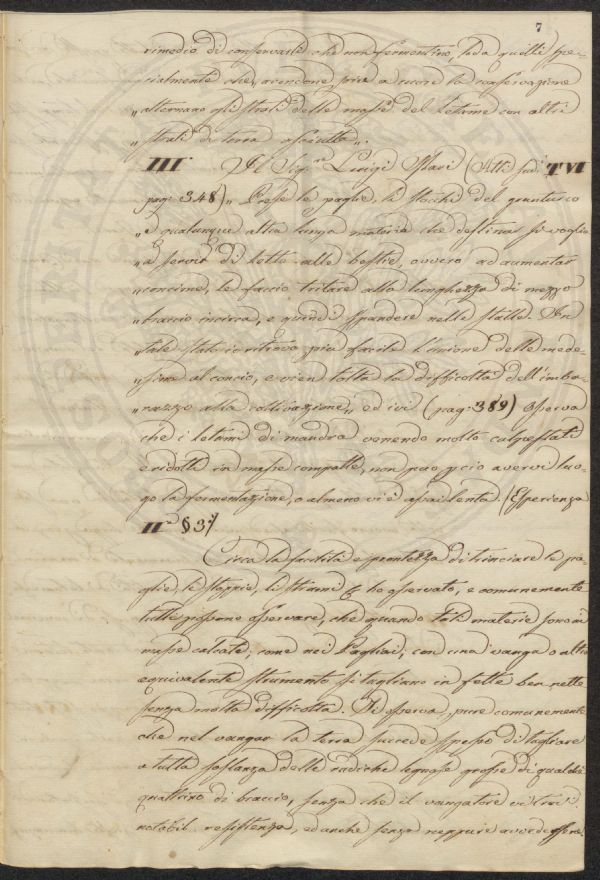 7
rimedio di conservarli che non fermentino, fu da quelli spe-
cialmente che, avendone più a cuore la conservazione
„alternano gli strati delle masse del letame con altri
„strati di terra asciutta„.
III Il Sig.re Luigi (Atti sud. T VI
pag: 348) „ Presse le paglie, li stocchi del granturco
„e qualunque altra lunga materia che destinar si voglia
„a servir di letto alle bestie, ovvero ad aumentar
„concime, le faccio tritare alla lunghezza di mezzo
„braccio incirca, e quindi spandere nelle stalle. In
„tale stato io ritrovo più facile l'unione delle mede-
„sime al concio, e vien tolta la difficoltà dell'imba-
„razzo alla coltivazione„ ed ivi (pag: 389) osserva
che i letami di mandra venendo molto calpestati
e ridotti in masse compatte, non può perciò avervi luo-
go la fermentazione, o almeno vi è assai lenta. (Esperienza
II.a § 3.°)
Circa la facilità e prontezza di trinciare le pa-
glie, le stoppie, li strami &c ho osservato, e comunemente
tutti possono osservare, che quando tali materie sono in
masse calcate, come nei Pagliai, con una vanga o altro
equivalente strumento si tagliano in fette ben nette
senza molta difficoltà. Si osserva, pure comunemente
che nel vangar la terra succede spesso di tagliare
a tutta sostanza delle radiche legnose grosse di qualche
quattrino di braccio, senza che il vangatore vi trovi
notabil resistenza, ed anche senza neppure avvedersene